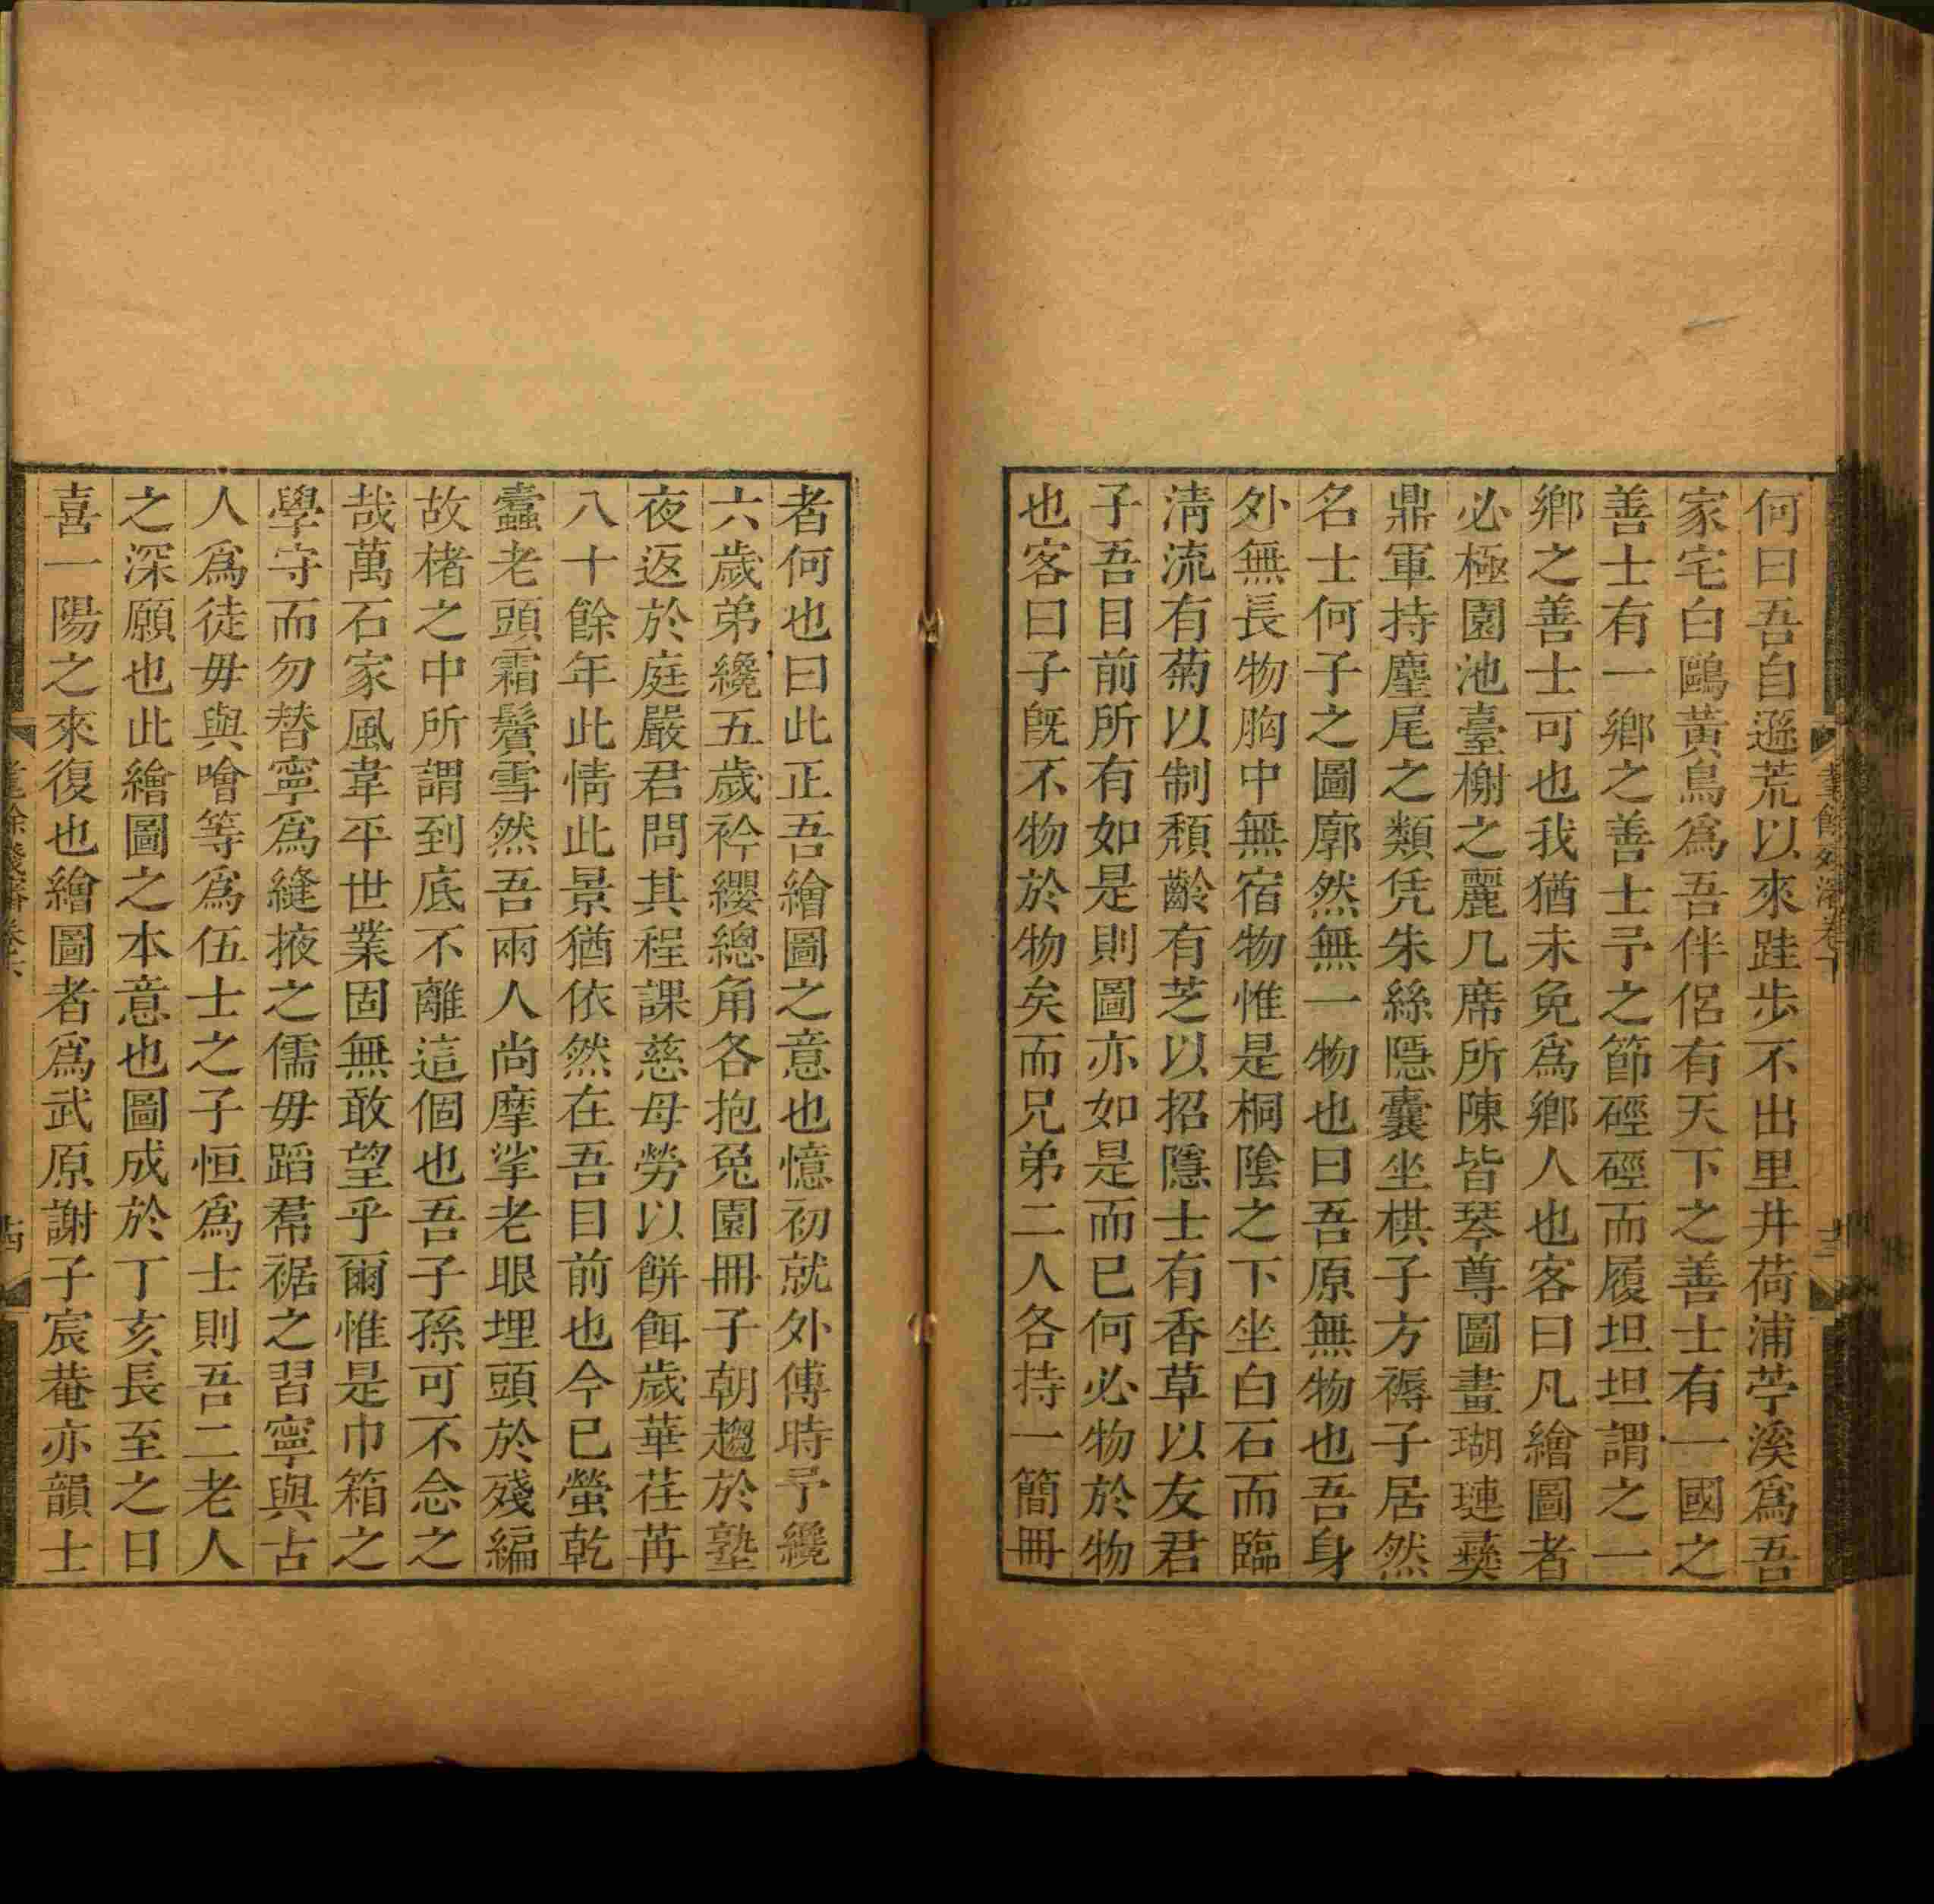 何曰吾自遜荒以來跬步不出里井荷浦苧溪爲吾
家宅白鷗黃鳥爲吾伴侶有天下之善士有一國之
善士有一鄉之善士予之節硜硜而履坦坦謂之一
鄉之善士可也我猶未免爲鄉人也客曰凡繪圖者
必極園池臺榭之麗几席所陳皆琴尊圖畫瑚璉彞
鼎軍持麈尾之類凭朱絲隱囊坐棋子方褥子居然
名士何子之圖廓然無一物也曰吾原無物也吾身
外無長物胸中無宿物惟是桐陰之下坐白石而臨
淸流有菊以制頹齡有芝以招隱士有香草以友君
子吾目前所有如是則圖亦如是而已何必物於物
也客曰子旣不物於物矣而兄弟二人各持一簡冊
者何也曰此正吾繪圖之意也憶初就外傅時予纔
六歲弟纔五歲衿纓總角各抱兔園冊子朝趨於塾
夜返於庭嚴君問其程課慈母勞以餅餌歲華荏苒
八十餘年此情此景猶依然在吾目前也今已螢乾
蠹老頭霜鬢雪然吾兩人尚摩挲老眼埋頭於殘編
故楮之中所謂到底不離這個也吾子孫可不念之
哉萬石家風韋平世業固無敢望乎爾惟是巾箱之
學守而勿替寧爲縫掖之儒毋蹈帬裾之習寧與古
人爲徒毋與噲等爲伍士之子恒爲士則吾二老人
之深願也此繪圖之本意也圖成於丁亥長至之日
喜一陽之來復也繪圖者爲武原謝子宸菴亦韻士